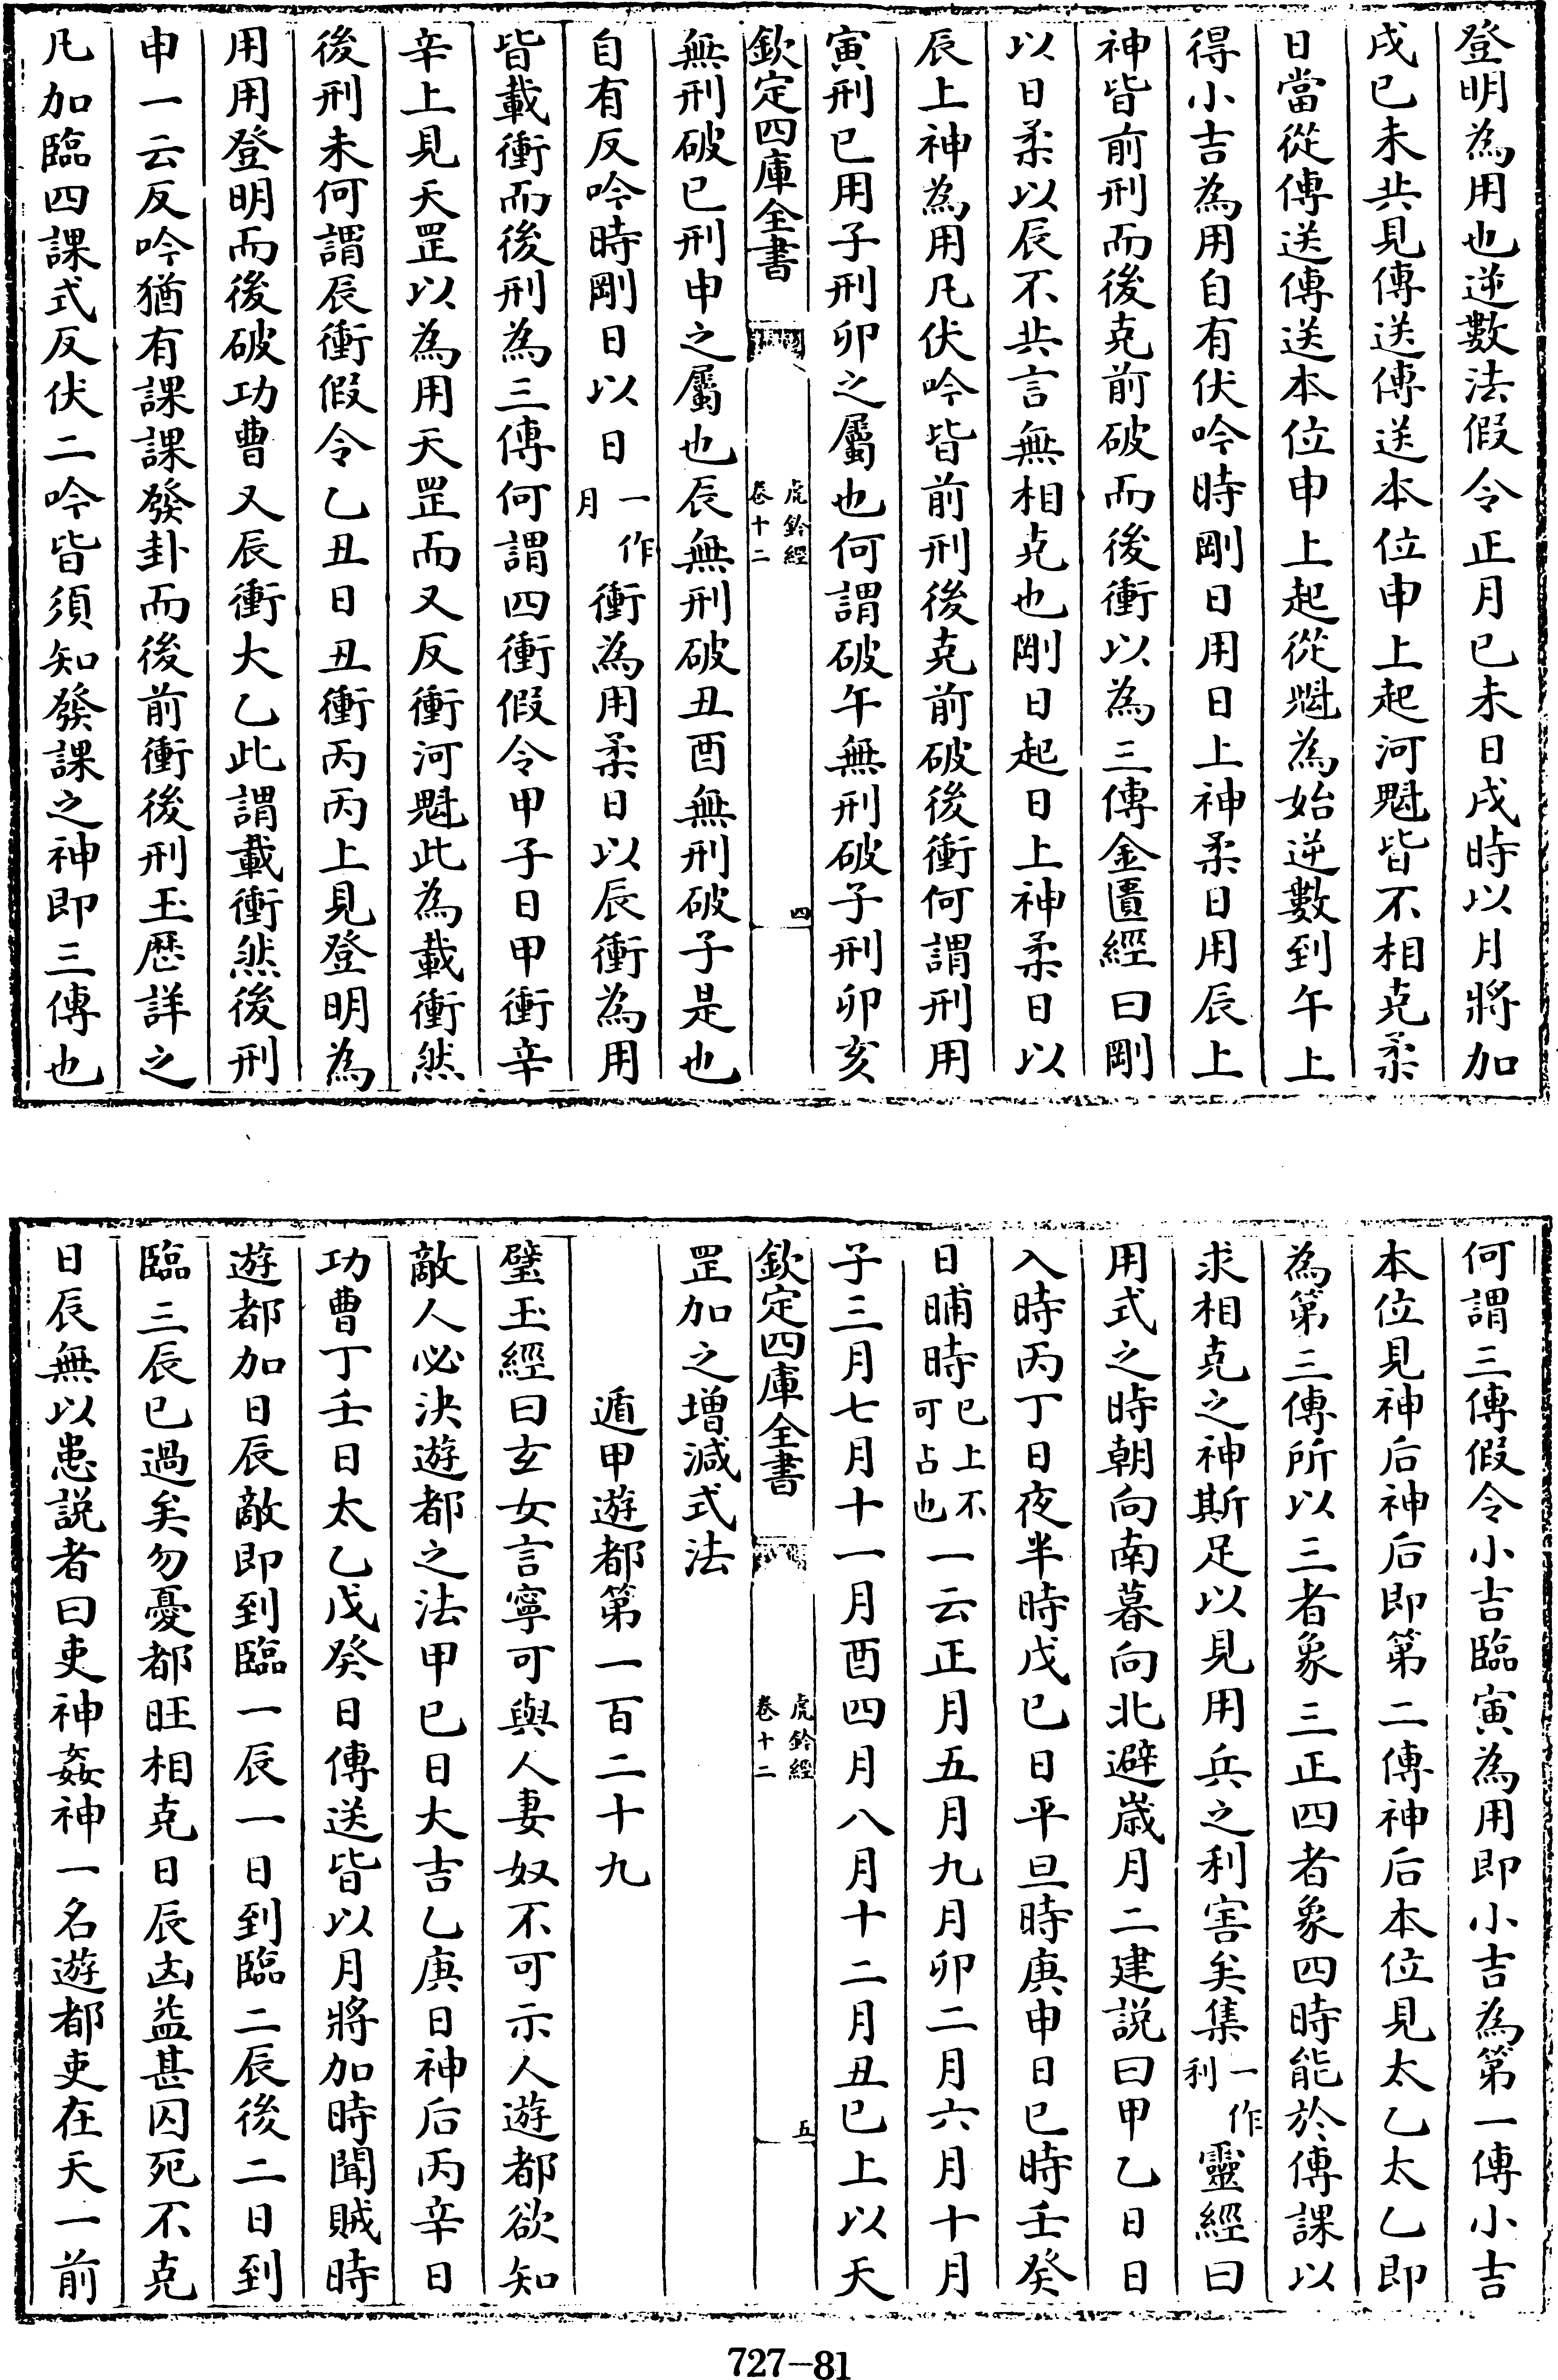 登明為用也逆數法假令正月巳未日戌時以月將加
戌巳未共見傳送傳送本位申上起河魁皆不相克柔
日當從傳送傳送本位申上起從魁為始逆數到午上
得小吉為用自有伏吟時剛日用日上神柔日用辰上
神皆前刑而後克前破而後衝以為三傳金匱經曰剛
以日柔以辰不共言無相克也剛日起日上神柔日以
辰上神為用凡伏吟皆前刑後克前破後衝何謂刑用
寅刑巳用子刑卯之屬也何謂破午無刑破子刑卯亥
欽定四庫全書 虎鈐經 卷十二 四
無刑破巳刑申之屬也辰無刑破丑酉無刑破子是也
自有反吟時剛日以日一作月衝為用柔日以辰衝為用
皆載衝而後刑為三傳何謂四衝假令甲子日甲衝辛
辛上見天罡以為用天罡而又反衝河魁此為載衝然
後刑未何謂辰衝假令乙丑日丑衝丙丙上見登明為
用用登明而後破功曹又辰衝大乙此謂載衝然後刑
申一云反吟猶有課課發卦而後前衝後刑玉歷詳之
凡加臨四課式反伏二吟皆須知發課之神即三傳也
何謂三傳假令小吉臨寅為用即小吉為第一傳小吉
本位見神后神后即第二傳神后本位見太乙太乙即
為第三傳所以三者象三正四者象四時能於傳課以
求相克之神斯足以見用兵之利害矣集一作利靈經曰
用式之時朝向南暮向北避歲月二建說曰甲乙日日
入時丙丁日夜半時戊巳日平旦時庚申日巳時壬癸
日晡時巳上不可占也一云正月五月九月卯二月六月十月
子三月七月十一月酉四月八月十二月丑巳上以天
欽定四庫全書 虎鈐經 卷十二 五
罡加之增減式法
遁甲遊都第一百二十九
璧玉經曰玄女言寧可與人妻奴不可示人遊都欲知
敵人必決遊都之法甲巳日大吉乙庚日神后丙辛日
功曹丁壬日太乙戊癸日傳送皆以月將加時聞賊時
遊都加日辰敵即到臨一辰一日到臨二辰後二日到
臨三辰巳過矣勿憂都旺相克日辰凶益甚囚死不克
日辰無以患說者曰吏神姦神一名遊都吏在天一前
727-81